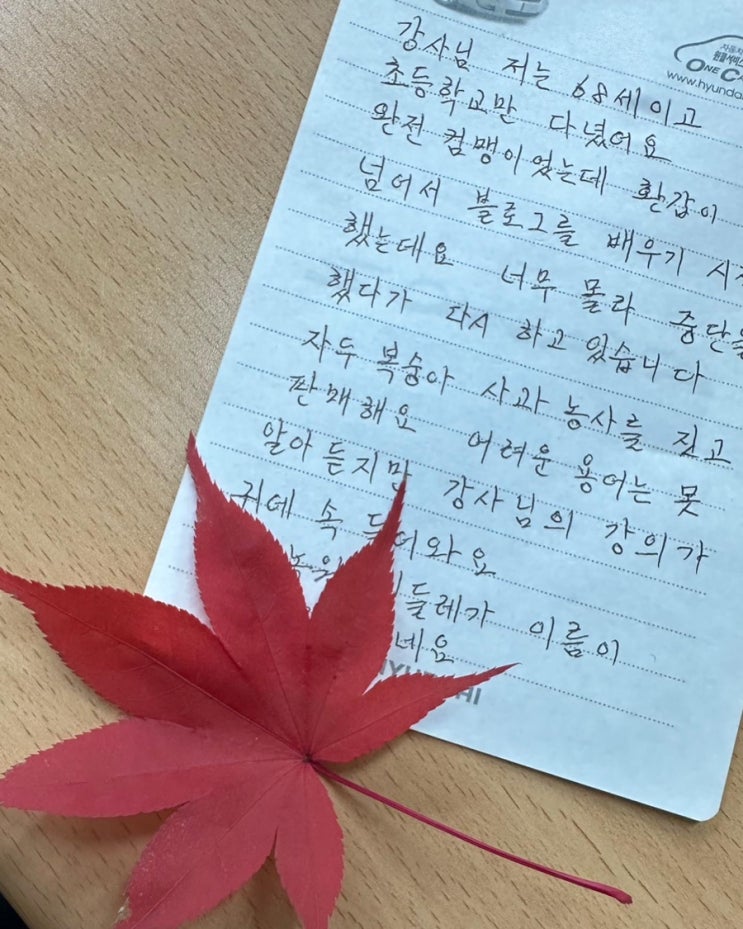 자동차
원콜서비스
ONE C
www.hyundai
강사님 저는 68세이고
초등학교만 다녔어요
완전 컴맹이었는데 환갑이
넘어서 블로그를 배우기 시
했는데요 너무 몰라 중단을
했다가 다시 하고 있습니다
자두 복숭아 사과 농사를 짓고
판매해요 어려운 용어는 못
알아 듣지만 강사님의 강의가
귀에 속 들어와요
들레가 이름이
네요